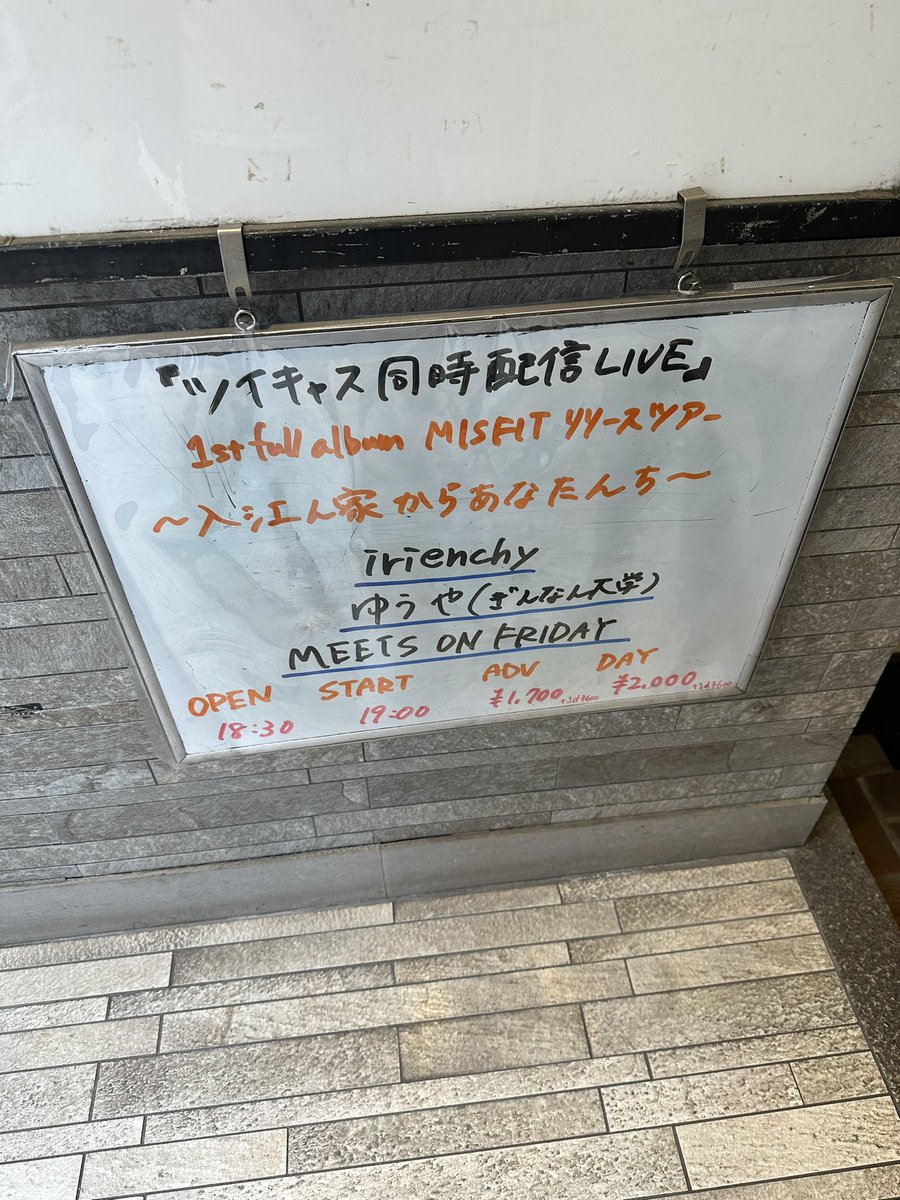 『ツイキャス同時配信LIVE』
1st full album MISFIT リリースツアー
～入江ん家からあなたんち～
irienchy
ゆうや(ぎんなん大学)
MEETS ON FRIDAY
OPEN START ADV DAY
18:30 19:00 ¥1.700+1d¥600 ¥2.000+1d¥600